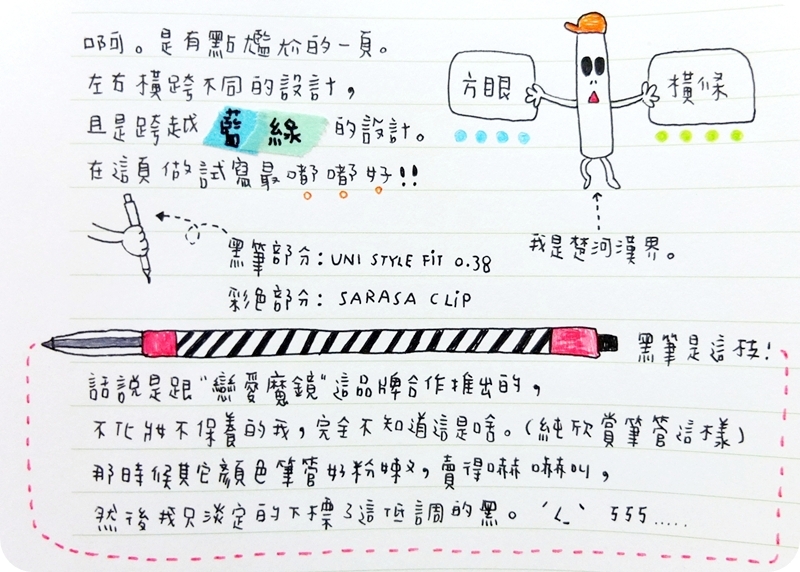 啊呵。是有點尷尬的一頁。
左右橫跨不同的設計，
且是跨越 藍 綠 的設計。
在這頁做試寫最嘟嘟好!!
方眼
橫條
我是楚河漢界。
黑筆部分：UNI STYLE FIT 0.38
彩色部分：SARASA CLIP
黑筆是這枝!
話說是跟"戀愛魔鏡"這品牌合作推出的，
不化妝不保養的我，完全不知道這是啥。(純欣賞筆管這樣)
那時候其它顏色筆管好粉嫩，賣得嚇嚇叫，
然後我只淡定的下標了這低調的黑。ˊ<_ˋ ㄎㄎㄎ.....